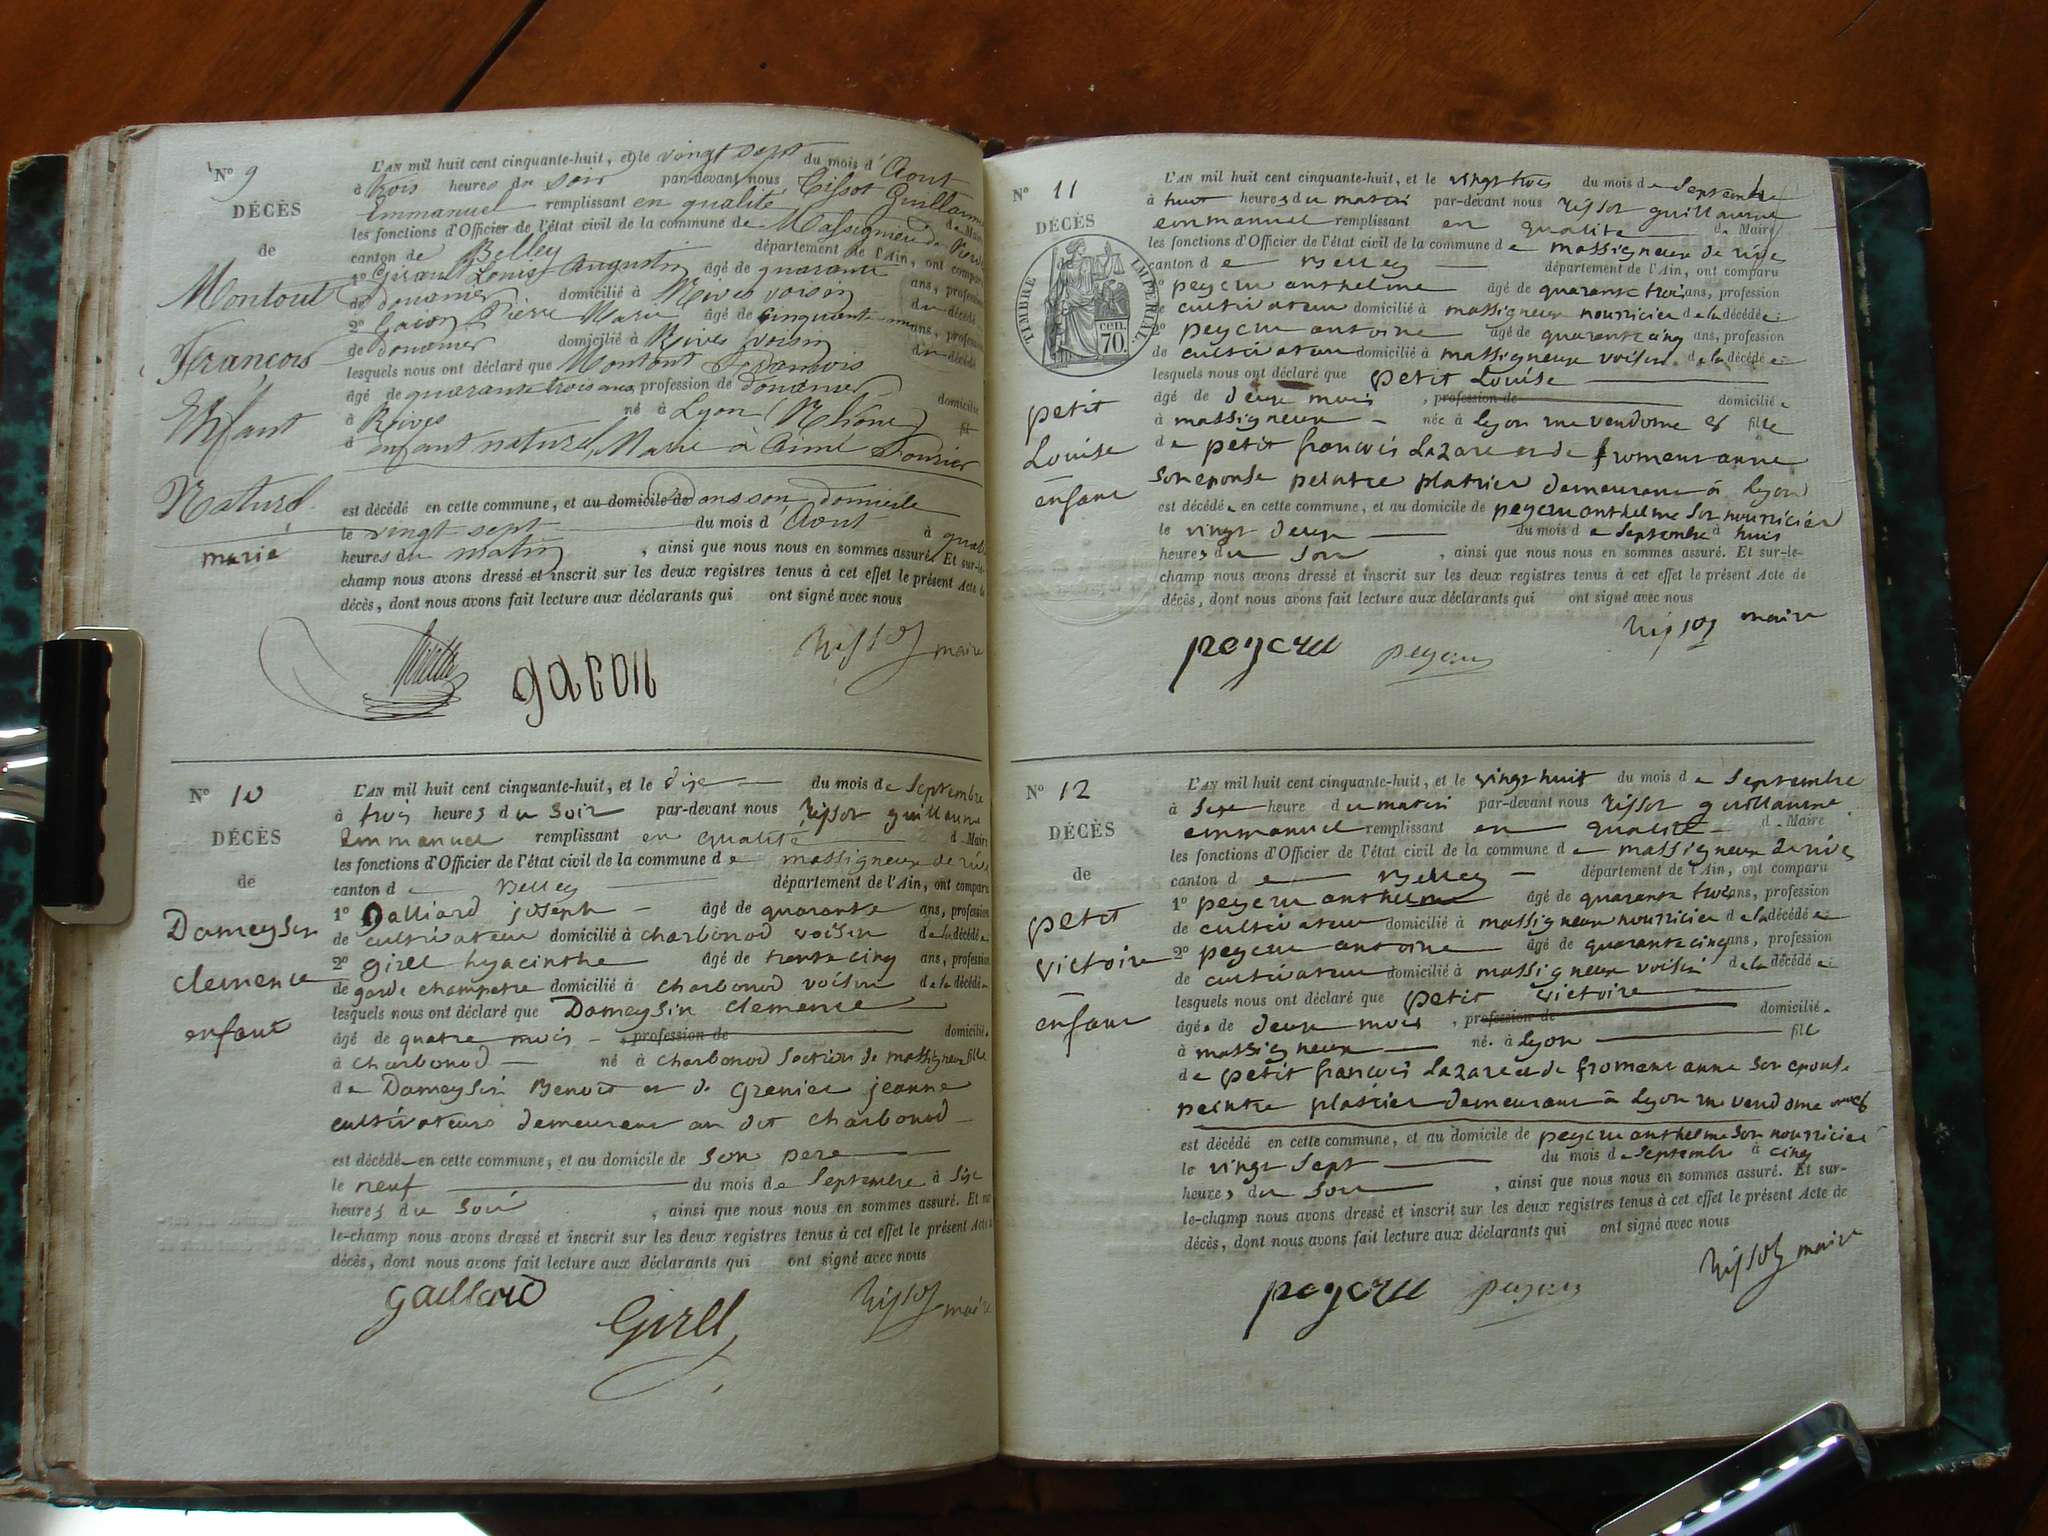 N° 9
DÉCÈS
de
Montout
François
Enfant
Naturel
marié
L'AN mil huit cent cinquante-huit, et le vingt sept du mois d'Aout
à trois heures du soir par-devant nous Tissot Guillaume
Emmanuel remplissant en qualité de Maire
les fonctions d'Officier de l'état civil de la commune de Massignieu de Rives
canton de Belley département de l'Ain, ont comparu
1° Louis Augustin âgé de quarante ans, profession
de douanier domicilié à Rives voisin du décédé
2° Pierre Marie âgé de cinquante ans, profession
de douanier domicilié à Rives voisin du décédé
lesquels nous ont déclaré que Montout François
âgé de quarante trois ans, profession de douanier domicilié
à Rives né à Lyon (Rhône) fil
d enfant naturel, Marié à
est décédé en cette commune, et au domicile de dans son domicile
le vingt sept du mois d'Aout à quatre
heures du matin, ainsi que nous nous en sommes assuré. Et sur-le-
champ nous avons dressé et inscrit sur les deux registres tenus à cet effet le présent Acte de
décès, dont nous avons fait lecture aux déclarants qui ont signé avec nous
gacon
Tissot maire
N° 10
DÉCÈS
de
Dameysin
clemence
enfant
L'AN mil huit cent cinquante-huit, et le dix du mois de Septembre
à trois heures du soir par-devant nous Tissot guillaume
Emmanuel remplissant en qualité d Maire
les fonctions d'Officier de l'état civil de la commune de massigneux de rives
canton de Belley département de l'Ain, ont comparu
1° Galliard joseph âgé de quarante ans, profession
de cultivateur domicilié à charbonod voisin de la décédée
2° girel hyacinthe âgé de trente cinq ans, profession
de garde champetre domicilié à charbonod voisin de la décédée
lesquels nous ont déclaré que Dameysin clemence
âgé de quatre mois, profession de domicilié
à charbonod né à charbonod section de massigneux fille
de Dameysin Benoit et de grenier jeanne
cultivateurs demeurant au dit charbonod
est décédé en cette commune, et au domicile de son pere
le neuf du mois de Septembre à six
heures du soir, ainsi que nous nous en sommes assuré. Et sur-
le-champ nous avons dressé et inscrit sur les deux registres tenus à cet effet le présent Acte de
décès, dont nous avons fait lecture aux déclarants qui ont signé avec nous
gaillard
Girel
Tissot maire
N° 11
DÉCÈS
de
TIMBRE IMPERIAL
70 cen.
petit
Louise
enfant
L'AN mil huit cent cinquante-huit, et le vingt trois du mois de Septembre
à huit heures du matin par-devant nous Tissot guillaume
emmanuel remplissant en qualité d Maire
les fonctions d'Officier de l'état civil de la commune de massigneux de rives
canton de Belley département de l'Ain, ont comparu
1° peycru anthelme âgé de quarante trois ans, profession
de cultivateur domicilié à massigneux nourricier de la décédée
2° peycru antoine âgé de quarante cinq ans, profession
de cultivateur domicilié à massigneux voisin de la décédée
lesquels nous ont déclaré que petit Louise
âgé de deux mois, profession de domicilié
à massigneux née à Lyon rue vendome 98 fille
de petit françois Lazare et de froment anne
son epouse peintre platrier demeurant à Lyon
est décédée en cette commune, et au domicile de peycru anthelme son nourricier
le vingt deux du mois de Septembre à huit
heures du soir, ainsi que nous nous en sommes assuré. Et sur-le-
champ nous avons dressé et inscrit sur les deux registres tenus à cet effet le présent Acte de
décès, dont nous avons fait lecture aux déclarants qui ont signé avec nous
peycru
peycru
Tissot maire
N° 12
DÉCÈS
de
petit
victoire
enfant
L'AN mil huit cent cinquante-huit, et le vingt huit du mois de Septembre
à Sept heure du matin par-devant nous Tissot guillaume
emmanuel remplissant en qualité d Maire
les fonctions d'Officier de l'état civil de la commune de massigneux de rives
canton de Belley département de l'Ain, ont comparu
1° peycru anthelme âgé de quarante trois ans, profession
de cultivateur domicilié à massigneux nourricier de la décédée
2° peycru antoine âgé de quarante cinq ans, profession
de cultivateur domicilié à massigneux voisin de la décédée
lesquels nous ont déclaré que petit victoire
âgé de deux mois, profession de domicilié
à massigneux né à Lyon fille
de petit françois Lazare et de froment anne son epouse
peintre platrier demeurant à Lyon rue vendome
est décédé en cette commune, et au domicile de peycru anthelme son nourricier
le vingt sept du mois de Septembre à cinq
heures du soir, ainsi que nous nous en sommes assuré. Et sur-
le-champ nous avons dressé et inscrit sur les deux registres tenus à cet effet le présent Acte de
décès, dont nous avons fait lecture aux déclarants qui ont signé avec nous
peycru
peycru
Tissot maire